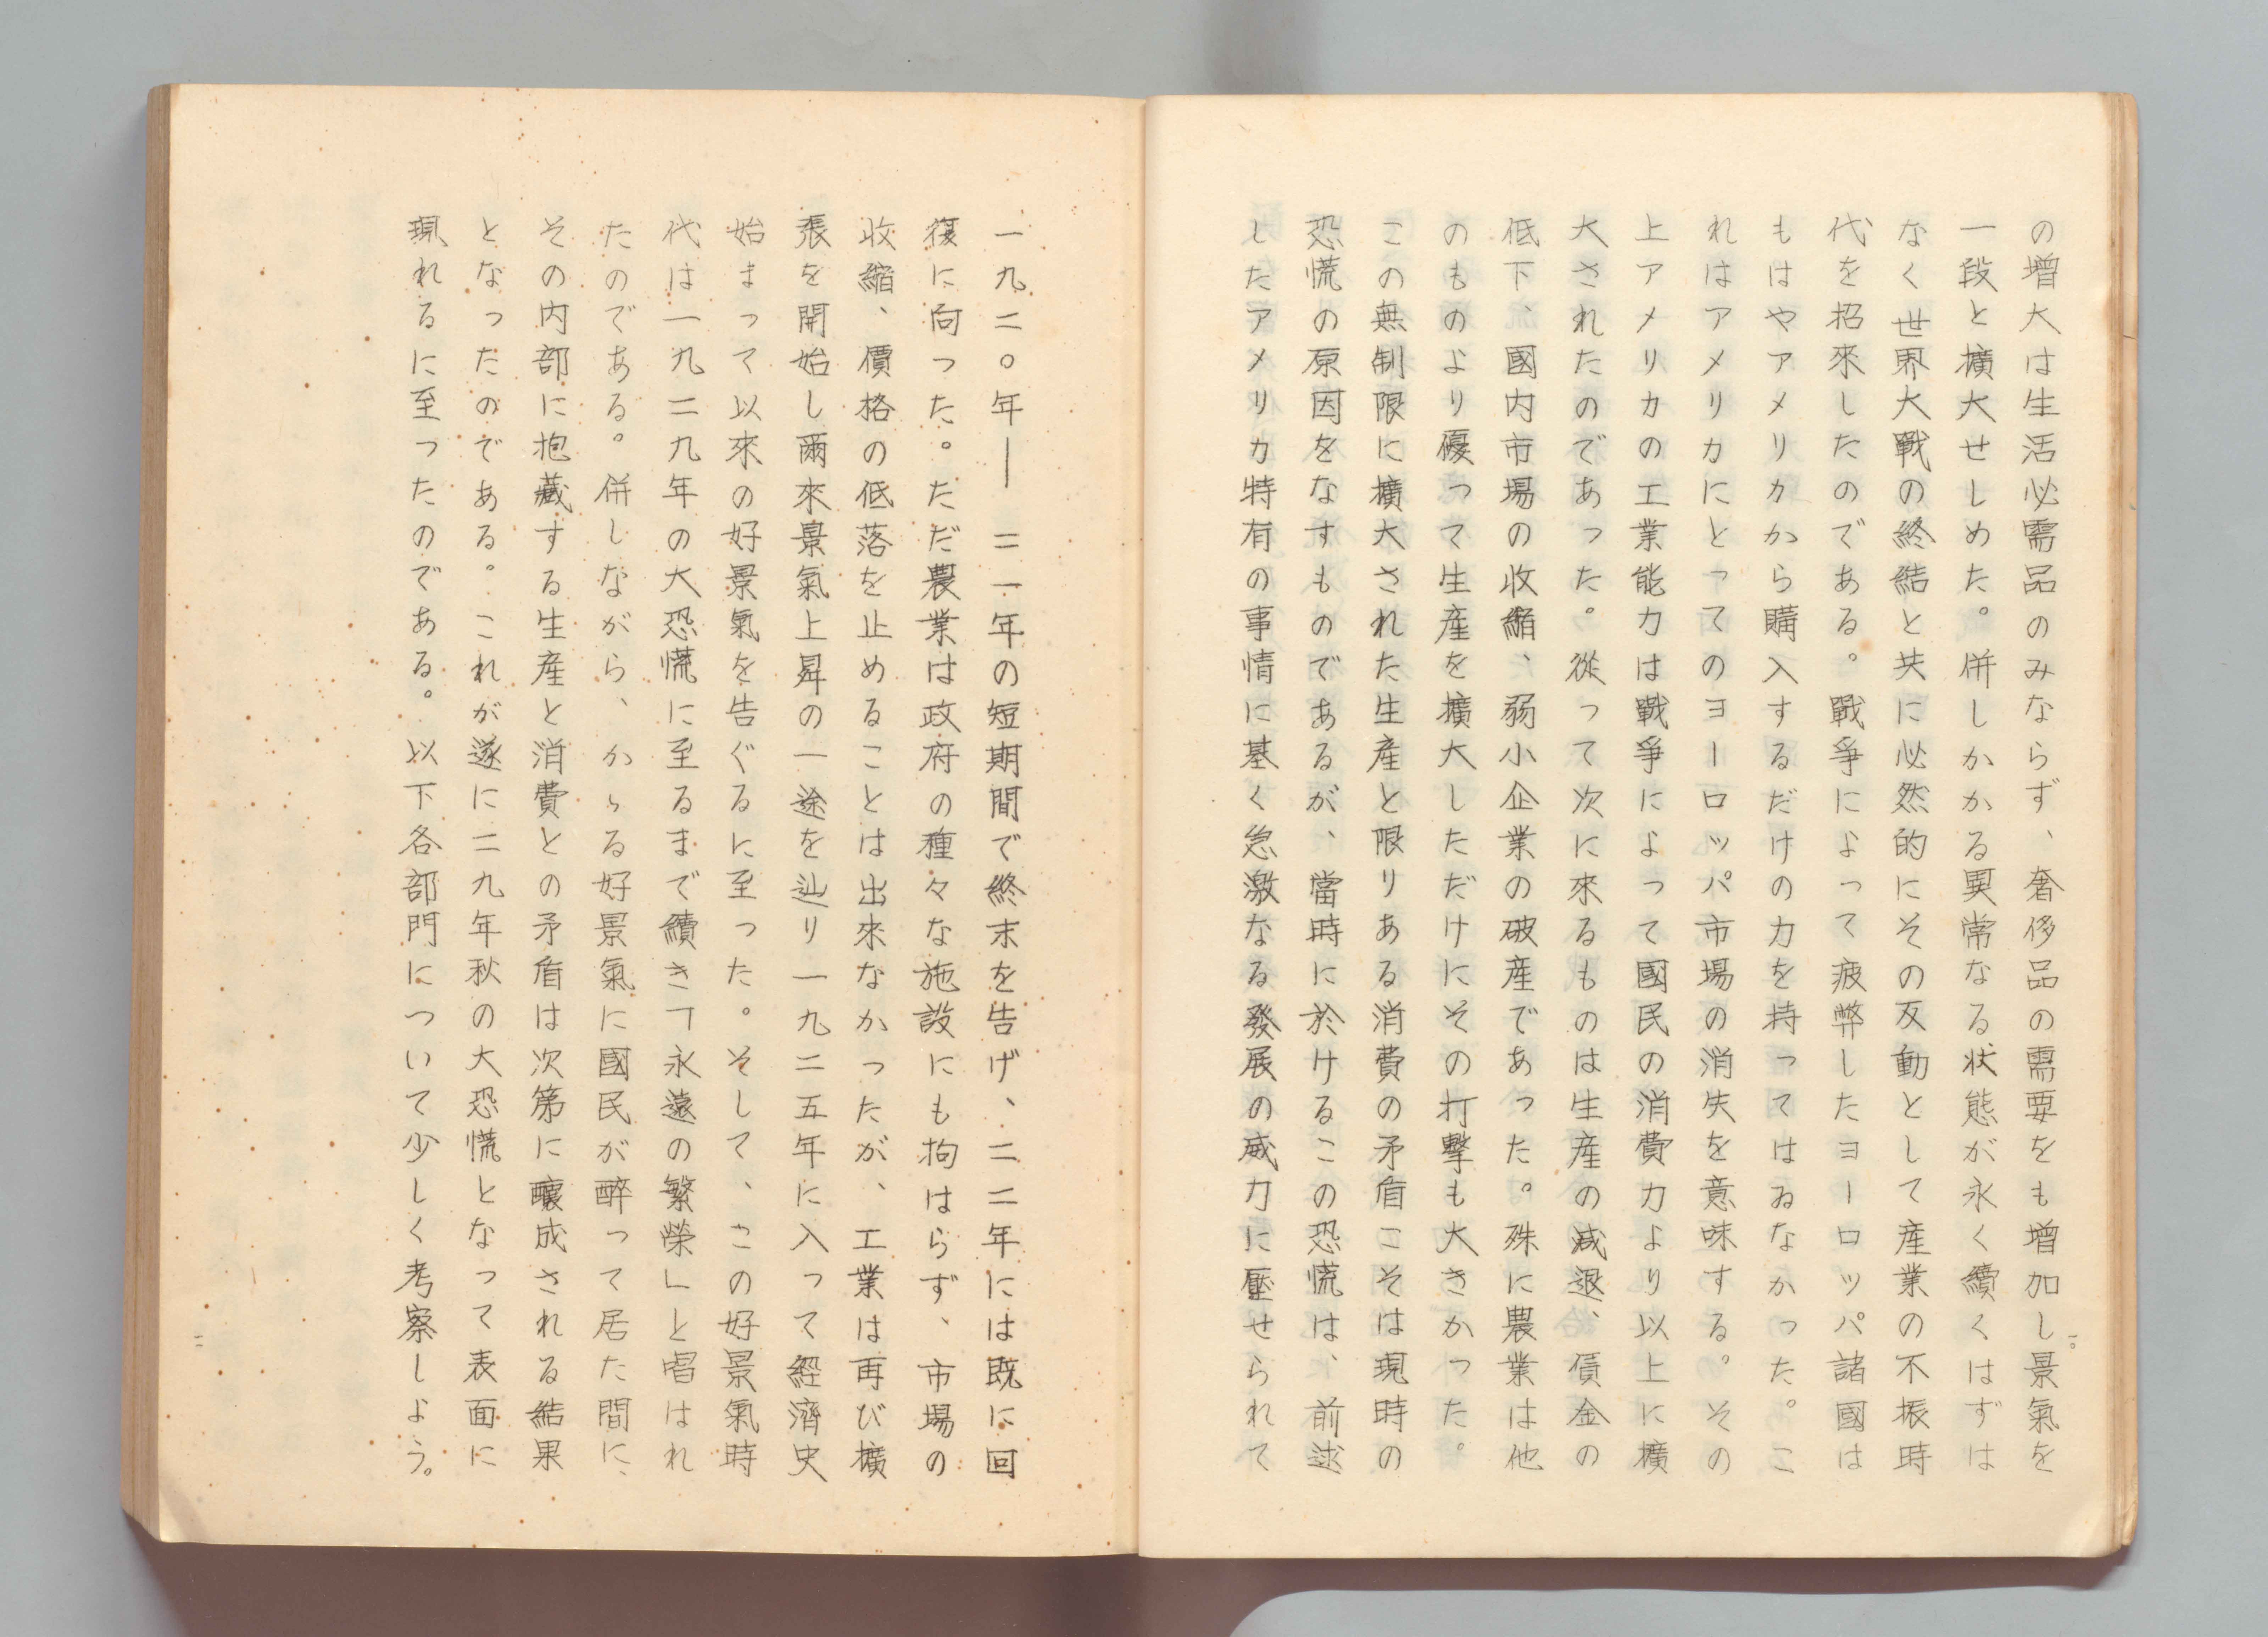 の増大は生活必需品のみならず、奢侈品の需要をも増加し景氣を
一段と擴大せしめた。併しかかる異常なる状態が永く續くはずは
なく世界大戰の終結と共に必然的にその反動として産業の不振時
代を招來したのである。戰爭によって疲弊したヨーロッパ諸國は
もはやアメリカから購入するだけの力を持ってはゐなかった。こ
れはアメリカにとってのヨーロッパ市場の消失を意味する。その
上アメリカの工業能力は戰爭によって國民の消費力より以上に擴
大されたのであった。從って次に來るものは生産の減退、賃金の
低下、國内市場の收縮、弱小企業の破産であった。殊に農業は他
のものより優って生産を擴大しただけにその打撃も大きかった。
この無制限に擴大された生産と限りある消費の矛盾こそは現時の
恐慌の原因をなすものであるが、當時に於けるこの恐慌は、前述
したアメリカ特有の事情に基く急激なる發展の威力に壓せられて
一〇
一九二〇年――二一年の短期間で終末を告げ、二二年には既に回
復に向った。ただ農業は政府の種々な施設にも拘はらず、市場の
收縮、價格の低落を止めることは出來なかったが、工業は再び擴
張を開始し爾來景氣上昇の一途を辿り一九二五年に入って經濟史
始まって以來の好景氣を告ぐるに至った。そして、この好景氣時
代は一九二九年の大恐慌に至るまで續き「永遠の繁榮」と唱はれ
たのである。併しながら、かゝる好景氣に國民が醉って居た間に、
その内部に抱藏する生産と消費との矛盾は次第に釀成される結果
となったのである。これが遂に二九年秋の大恐慌となって表面に
現れるに至ったのである。以下各部門について少しく考察しよう。
一一